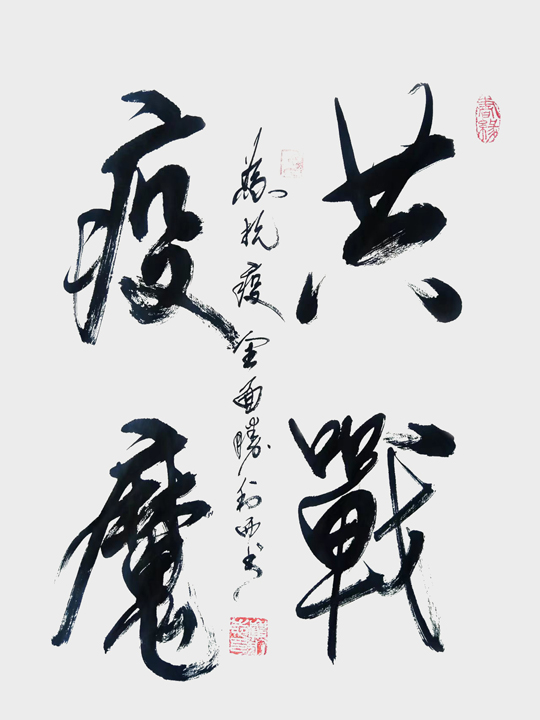 共戰
疫魔
為抗疫全面勝利而書